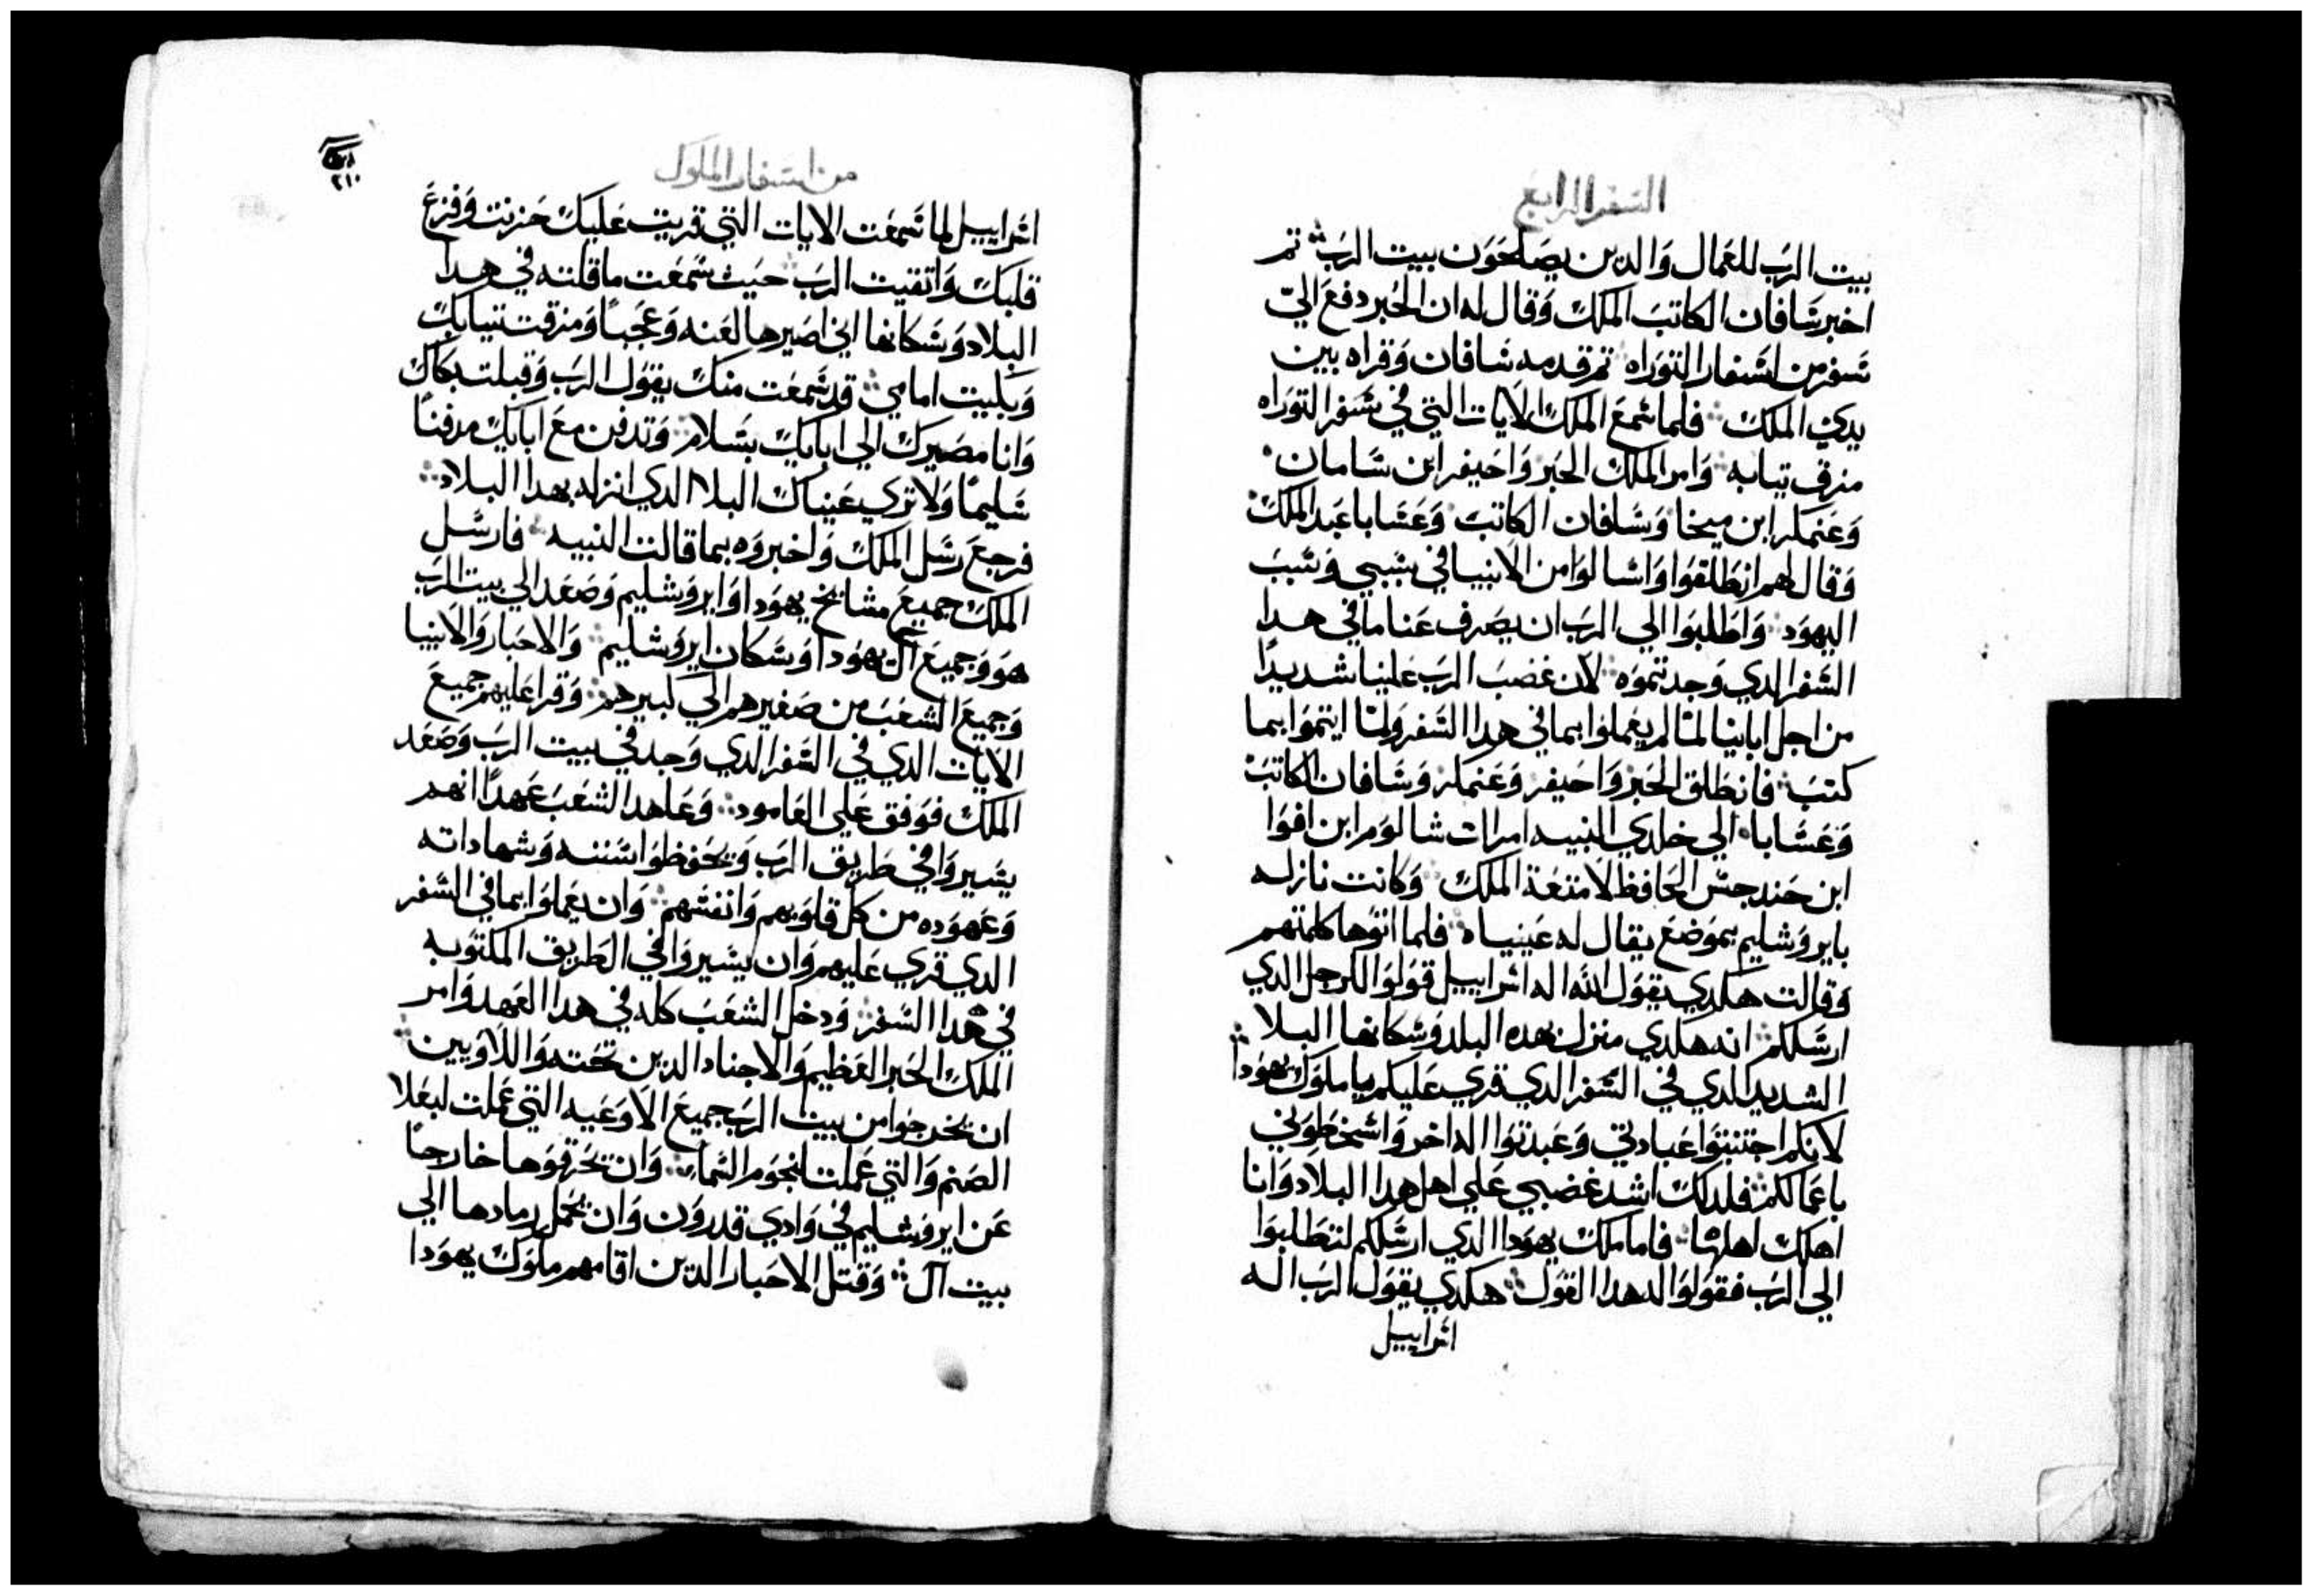 السفر الرابع
بيت الرب للعمال والدين يصلحون بيت الرب تم
اخبر شافان الكاتب الملك وقال له ان الحبر دفع الي
سفر من اسفار التوراه تم قدمه شافان وقراه بين
يدي الملك فلما سمع الملك الايات التي في سفر التوراه
مزق تيابه وامر الملك الحبر واحيفر ابن شامان
وعنمكر ابن ميخا وشافان الكاتب وعشابا عبد الملك
وقال لهم انطلقوا واسالوا من الانبيا في سببي وسبب
اليهود واطلبوا الي الرب ان يصرف عنا ما في هدا
السفر الدي وجدتموه لان غضب الرب علينا شديدا
من اجل اباينا لما لم يعملوا بما في هدا السفر ولما ايتموا بما
كتب فانطلق الحبر واحيفر وعنمكر وشافان الكاتب
وعشابا الي خلدي النبيه امرات شالوم ابن افوا
ابن حندجس الحافظ لامتعة الملك وكانت نازله
بايروشليم بموضع يقال له عينياه فلما اتوها كلمتهم
وقالت هكدي يقول الله اله اسراييل قولوا للرجل الدي
ارسلكم انه هكدي منزل بهده البلد وسكانها البلا
الشديد الدي في السفر الدي قري عليكم يا ملوك يهودا
لانكم اجتنبتوا عبادتي وعبدتوا اله اخر واسخطوني
باعمالكم فلدلك اشد غضبي علي اهل هدا البلاد وانا
اهلك اهلها فاما ملك يهودا الدي ارسلكم لتطلبوا
الي الرب فقولوا له هدا القول هكدي يقول الرب اله
اسراييل
من اسفار الملوك
٢١٠
اسراييل لما سمعت الايات التي قريت عليك حزنت وفزع
قلبك واتقيت الرب حيث سمعت ما قلته في هدا
البلاد وسكانها اني اصيرها لعنه وعجبا ومزقت تيابك
وبكيت امامي قد سمعت منك يقول الرب وقبلت بكاك
وانا مصيرك الي ابايك بسلام وتدفن مع ابايك مدفنا
سليما ولا تري عيناك البلا الدي انزله بهدا البلاد
فرجع رسل الملك واخبروه بما قالت النبيه فارسل
الملك جميع مشايخ يهودا وايروشليم وصعد الي بيت الرب
هو وجميع ال يهودا وسكان ايروشليم والاحبار والانبيا
وجميع الشعب من صغيرهم الي كبيرهم وقرا عليهم جميع
الايات الدي في السفر الدي وجد في بيت الرب وصعد
الملك فوفق علي العامود وعاهد الشعب عهدا انهم
يسيروا في طريق الرب ويحفظوا سننه وشهاداته
وعهوده من كل قلوبهم وانفسهم وان يعملوا بما في السفر
الدي قري عليهم وان يسيروا في الطريق المكتوبه
في هدا السفر ودخل الشعب كله في هدا العهد وامر
الملك الحبر العظيم والاجناد الدين تحته واللاويين
ان يخرجوا من بيت الرب جميع الاوعيه التي عملت لبعلا
الصنم والتي عملت لنجوم السما وان تحرقوها خارجا
عن ايروشليم في وادي قدرون وان يحمل رمادها الي
بيت آل وقتل الاحبار الدين اقامهم ملوك يهودا